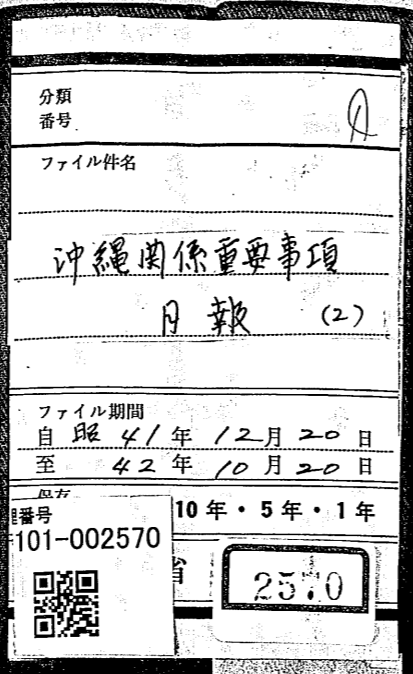 分類
番号
ファイル件名
沖縄関係重要事項
月報 (2)
ファイル期間
自 昭 41 年 12 月 20 日
至 42 年 10 月 20 日
保存
理番号
10年・5年・1年
101-002570
省
2570